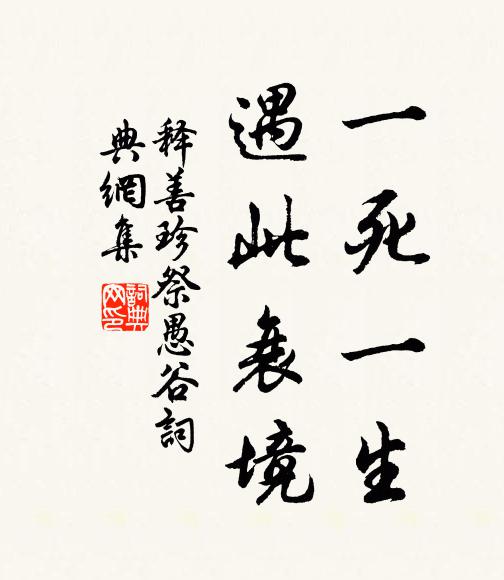 一死一生
遇此衰境
释善珍祭愚谷詞
典網集
詞典
网印